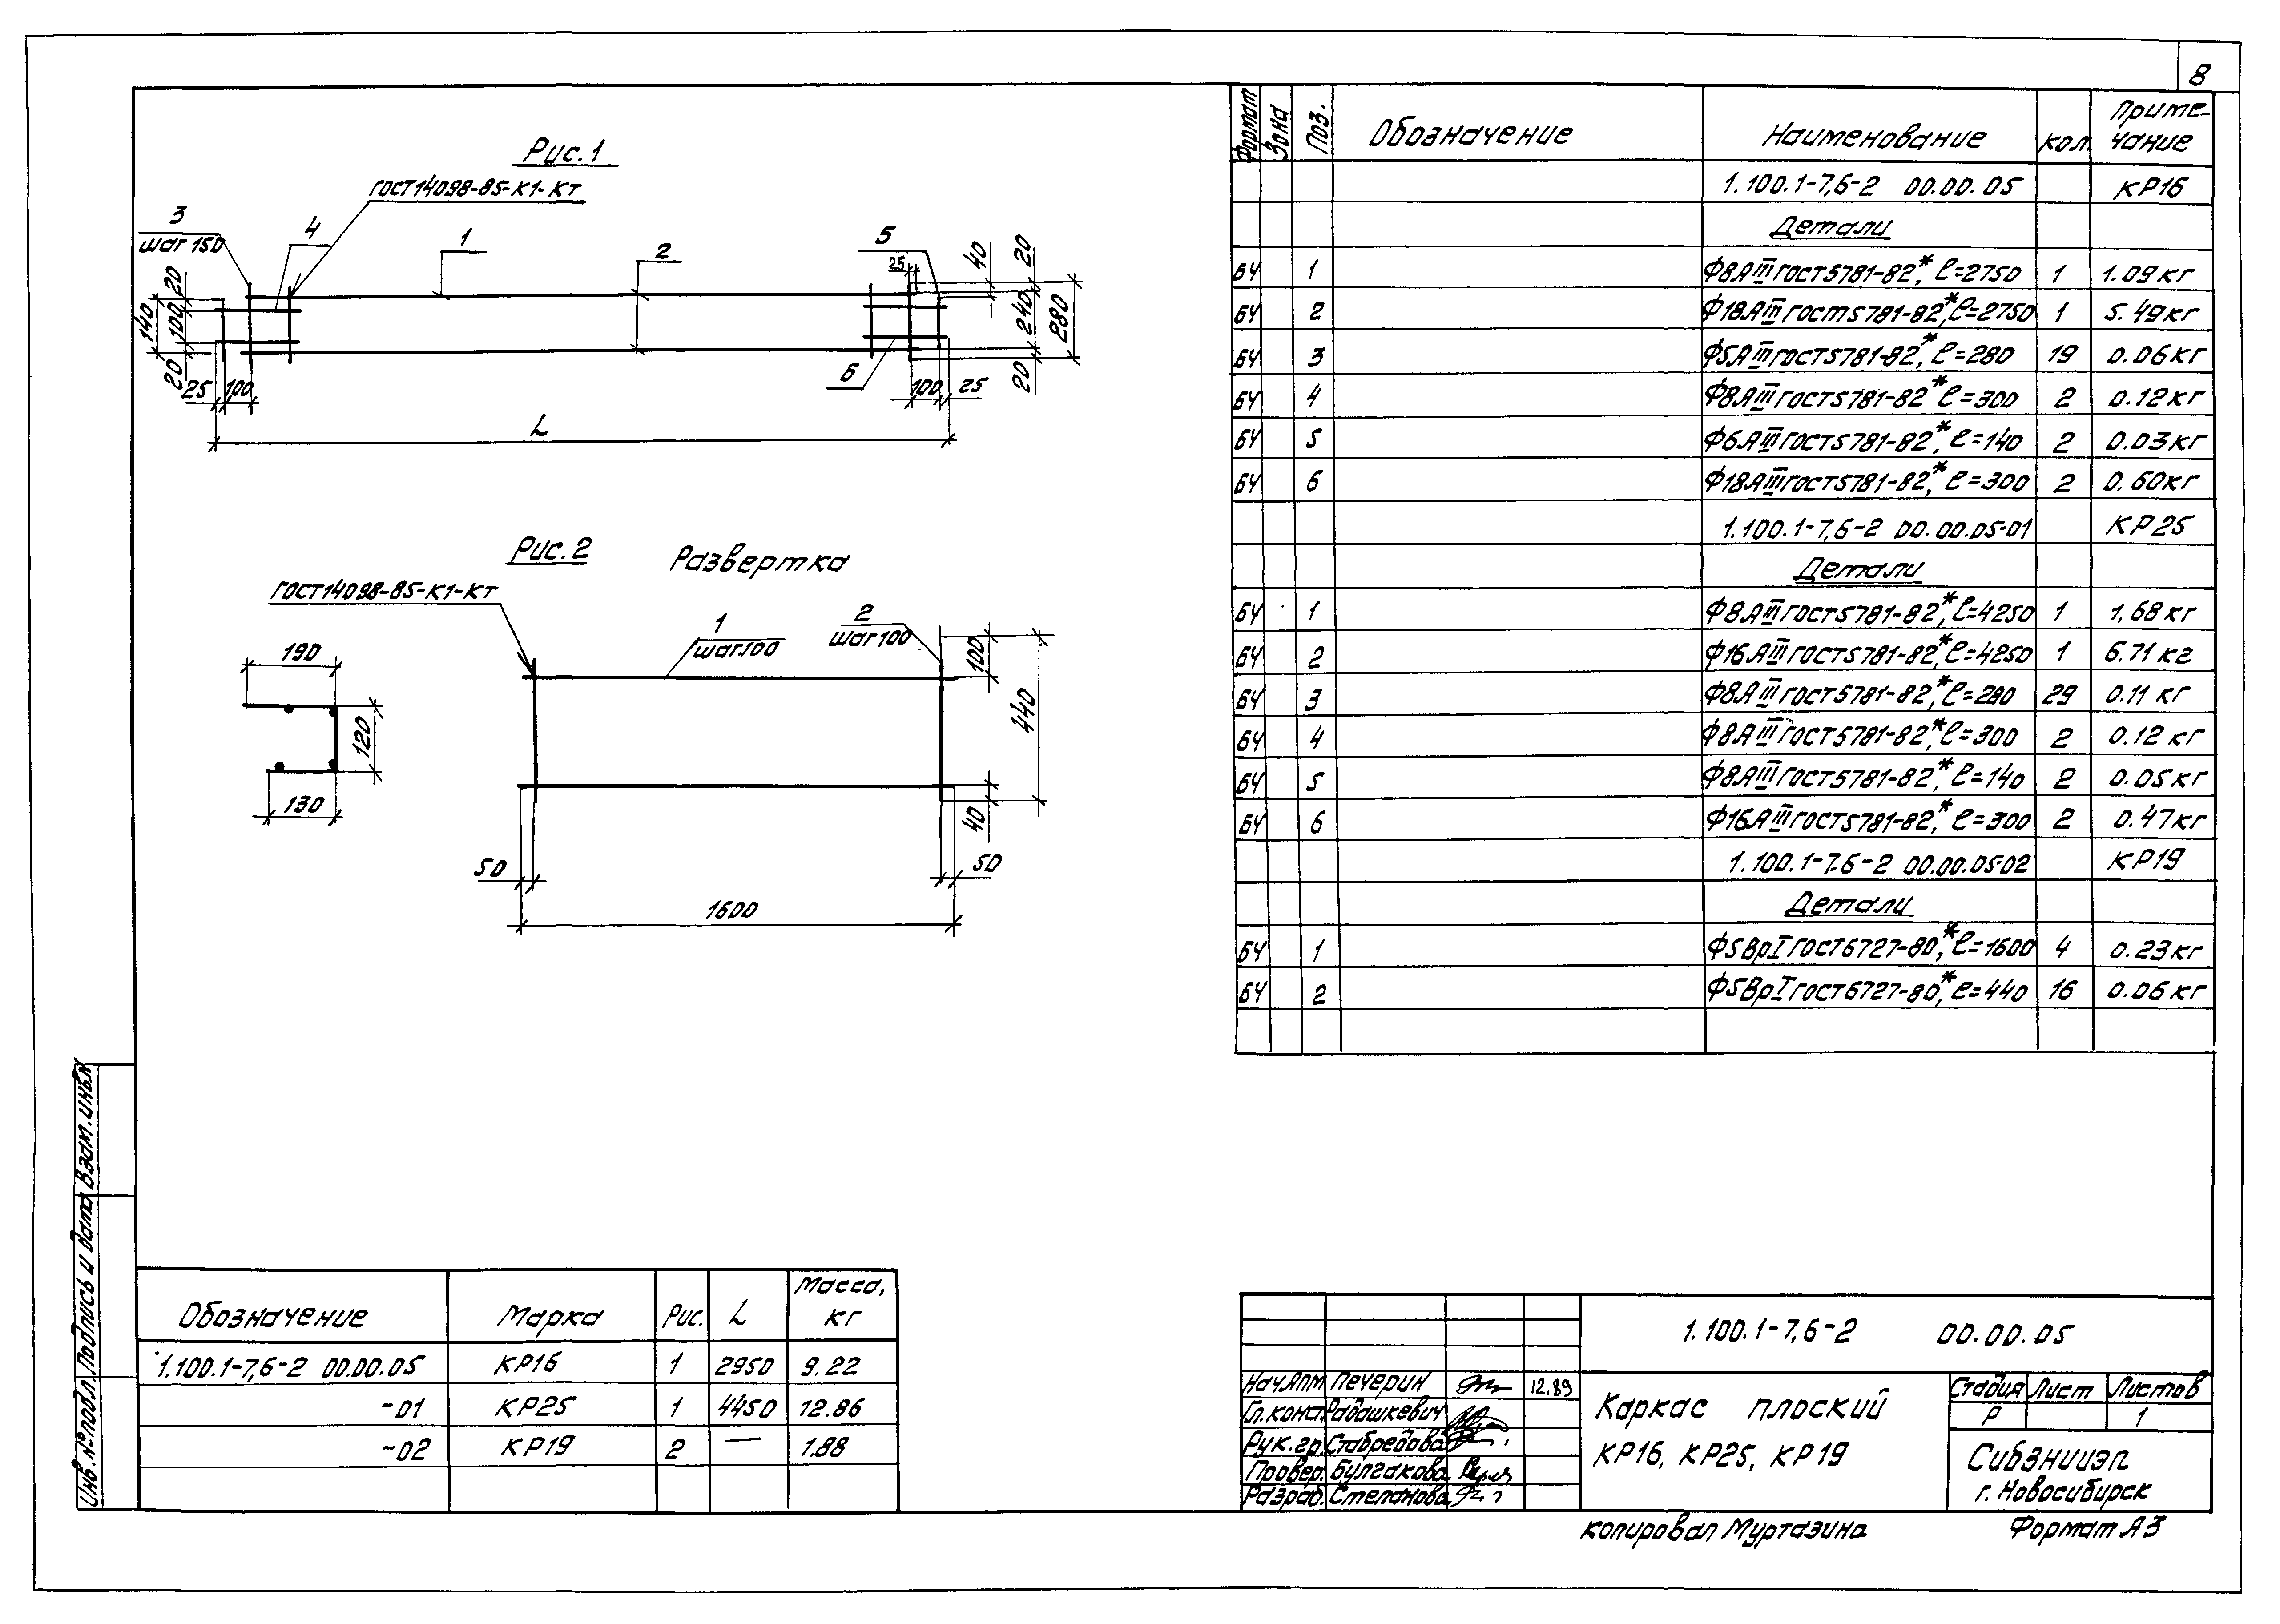 8
Рис.1
ГОСТ14098-85-К1-Кт
3
шаг 150
4
1
2
5
25
40
20
20
100
140
20
240
280
20
25
100
6
100
25
L
Рис.2 Развертка
ГОСТ14098-85-К1-Кт
1
шаг100
2
шаг100
190
120
130
100
440
40
50
50
1600
Формат Зона Поз. Обозначение Наименование Кол. Приме-
чание
1.100.1-7,6-2 00.00.05 КР16
Детали
БЧ 1 Ф8АIII ГОСТ5781-82*, ℓ=2750 1 1.09кг
БЧ 2 Ф18АIII ГОСТ5781-82*, ℓ=2750 1 5.49кг
БЧ 3 Ф5АIII ГОСТ5781-82*, ℓ=280 19 0.06кг
БЧ 4 Ф8АIII ГОСТ5781-82* ℓ=300 2 0.12кг
БЧ 5 Ф6АIII ГОСТ5781-82*, ℓ=140 2 0.03кг
БЧ 6 Ф18АIII ГОСТ5781-82*, ℓ=300 2 0.60кг
1.100.1-7,6-2 00.00.05-01 КР25
Детали
БЧ 1 Ф8АIII ГОСТ5781-82*, ℓ=4250 1 1.68кг
БЧ 2 Ф16АIII ГОСТ5781-82*, ℓ=4250 1 6.71кг
БЧ 3 Ф8АIII ГОСТ5781-82*, ℓ=280 29 0.11кг
БЧ 4 Ф8АIII ГОСТ5781-82*, ℓ=300 2 0.12кг
БЧ 5 Ф8АIII ГОСТ5781-82*, ℓ=140 2 0.05кг
БЧ 6 Ф16АIII ГОСТ5781-82*, ℓ=300 2 0.47кг
1.100.1-7.6-2 00.00.05-02 КР19
Детали
БЧ 1 Ф5ВрI ГОСТ6727-80*, ℓ=1600 4 0.23кг
БЧ 2 Ф5ВрI ГОСТ6727-80*, ℓ=440 16 0.06кг
Обозначение Марка Рис. L Масса,
кг
1.100.1-7,6-2 00.00.05 КР16 1 2950 9.22
-01 КР25 1 4450 12.86
-02 КР19 2 — 1.88
Инв.№подл. Подпись и дата Взам.инв.№
1.100.1-7,6-2 00.00.05
Нач.АПМ Печерин 12.89
Гл.конст. Рабашкевич
Рук.гр. Стабредова
Провер. Булгакова
Разраб. Степанова
Каркас плоский
КР16, КР25, КР19
Стадия Лист Листов
Р 1
СибЗНИИЭП
г. Новосибирск
Копировал Муртазина Формат А3